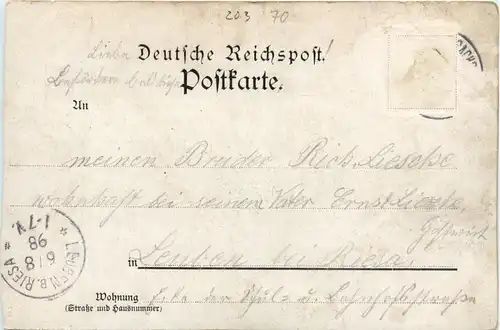 203 70
Liebe Deutsche Reichspost!
Postkarte.
An
meinen Bruder Rich. Liesche
wohnhaft bei seinem Vater Ernst Liesche
in Leuben bei Riesa
Wohnung Ecke der Schul- u. Bahnhofstrasse
(Straße und Hausnummer)
LEUBEN B. RIESA
6 8
98